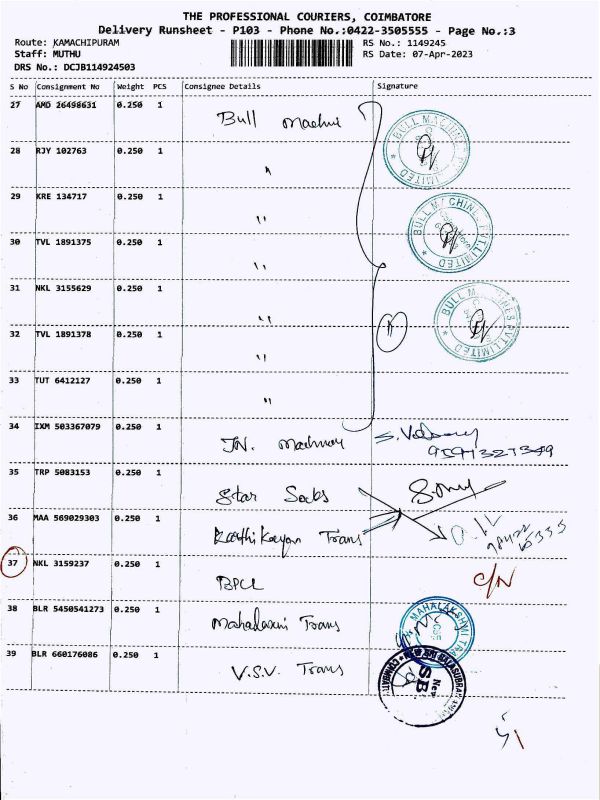 THE PROFESSIONAL COURIERS, COIMBATORE
Delivery Runsheet - P103 - Phone No.:0422-3505555 - Page No.:3
Route: KAMACHIPURAM RS No.: 1149245
Staff: MUTHU RS Date: 07-Apr-2023
DRS No.: DCJB114924503
S No Consignment No Weight PCS Consignee Details Signature
27 AMD 26498631 0.250 1 Bull Machine
28 RJY 102763 0.250 1 "
29 KRE 134717 0.250 1 "
30 TVL 1891375 0.250 1 "
31 NKL 3155629 0.250 1 "
32 TVL 1891378 0.250 1 "
33 TUT 6412127 0.250 1 "
BULL MACHINES PVT. LIMITED
BULL MACHINES PVT. LIMITED
BULL MACHINES PVT. LIMITED
34 IXM 503367079 0.250 1 TN.
35 TRP 5083153 0.250 1 Star
36 MAA 569029303 0.250 1 Karthikeyan Trans
37 NKL 3159237 0.250 1 BPCL C/N
38 BLR 5450541273 0.250 1 Trans
MAHALAKSHMI
39 BLR 660176086 0.250 1 V.S.V. Trans
New
SB